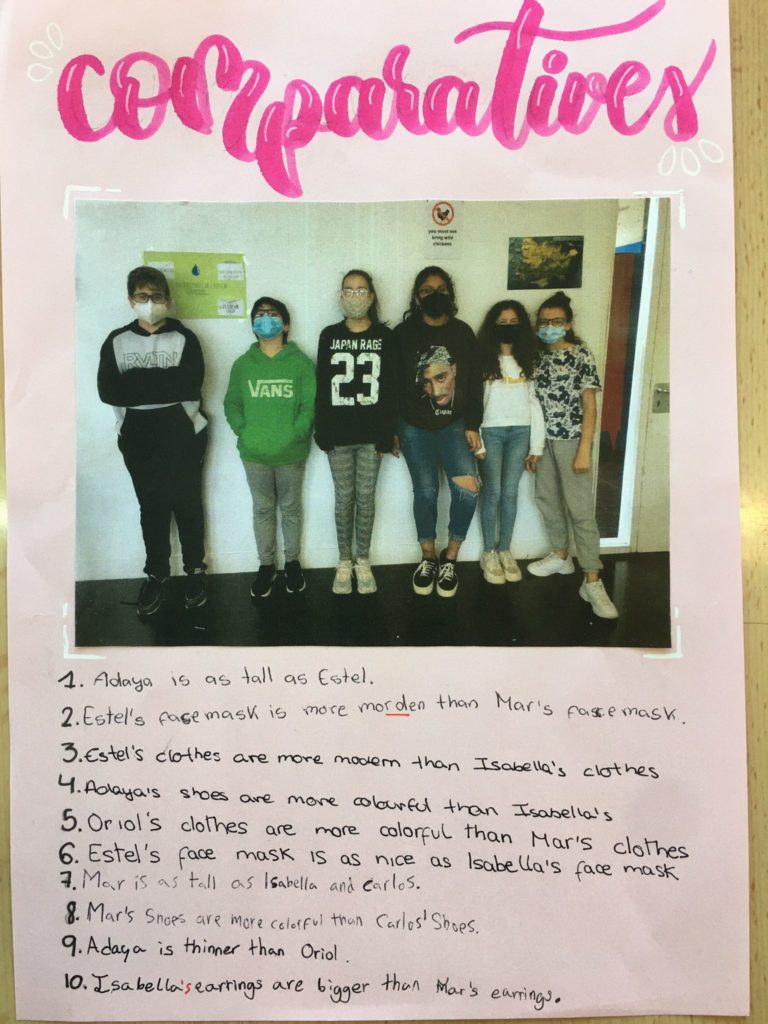 comparatives
you must not
bring wild
chickens
RVLTN
VANS
JAPAN RAGE
23
1. Adaya is as tall as Estel.
2. Estel's face mask is more morden than Mar's face mask.
3. Estel's clothes are more modern than Isabella's clothes
4. Adaya's shoes are more colourful than Isabella's
5. Oriol's clothes are more colorful than Mar's clothes
6. Estel's face mask is as nice as Isabella's face mask
7. Mar is as tall as Isabella and Carlos.
8. Mar's Shoes are more colorful than Carlos' Shoes.
9. Adaya is thinner than Oriol.
10. Isabella's earrings are bigger than Mar's earrings.